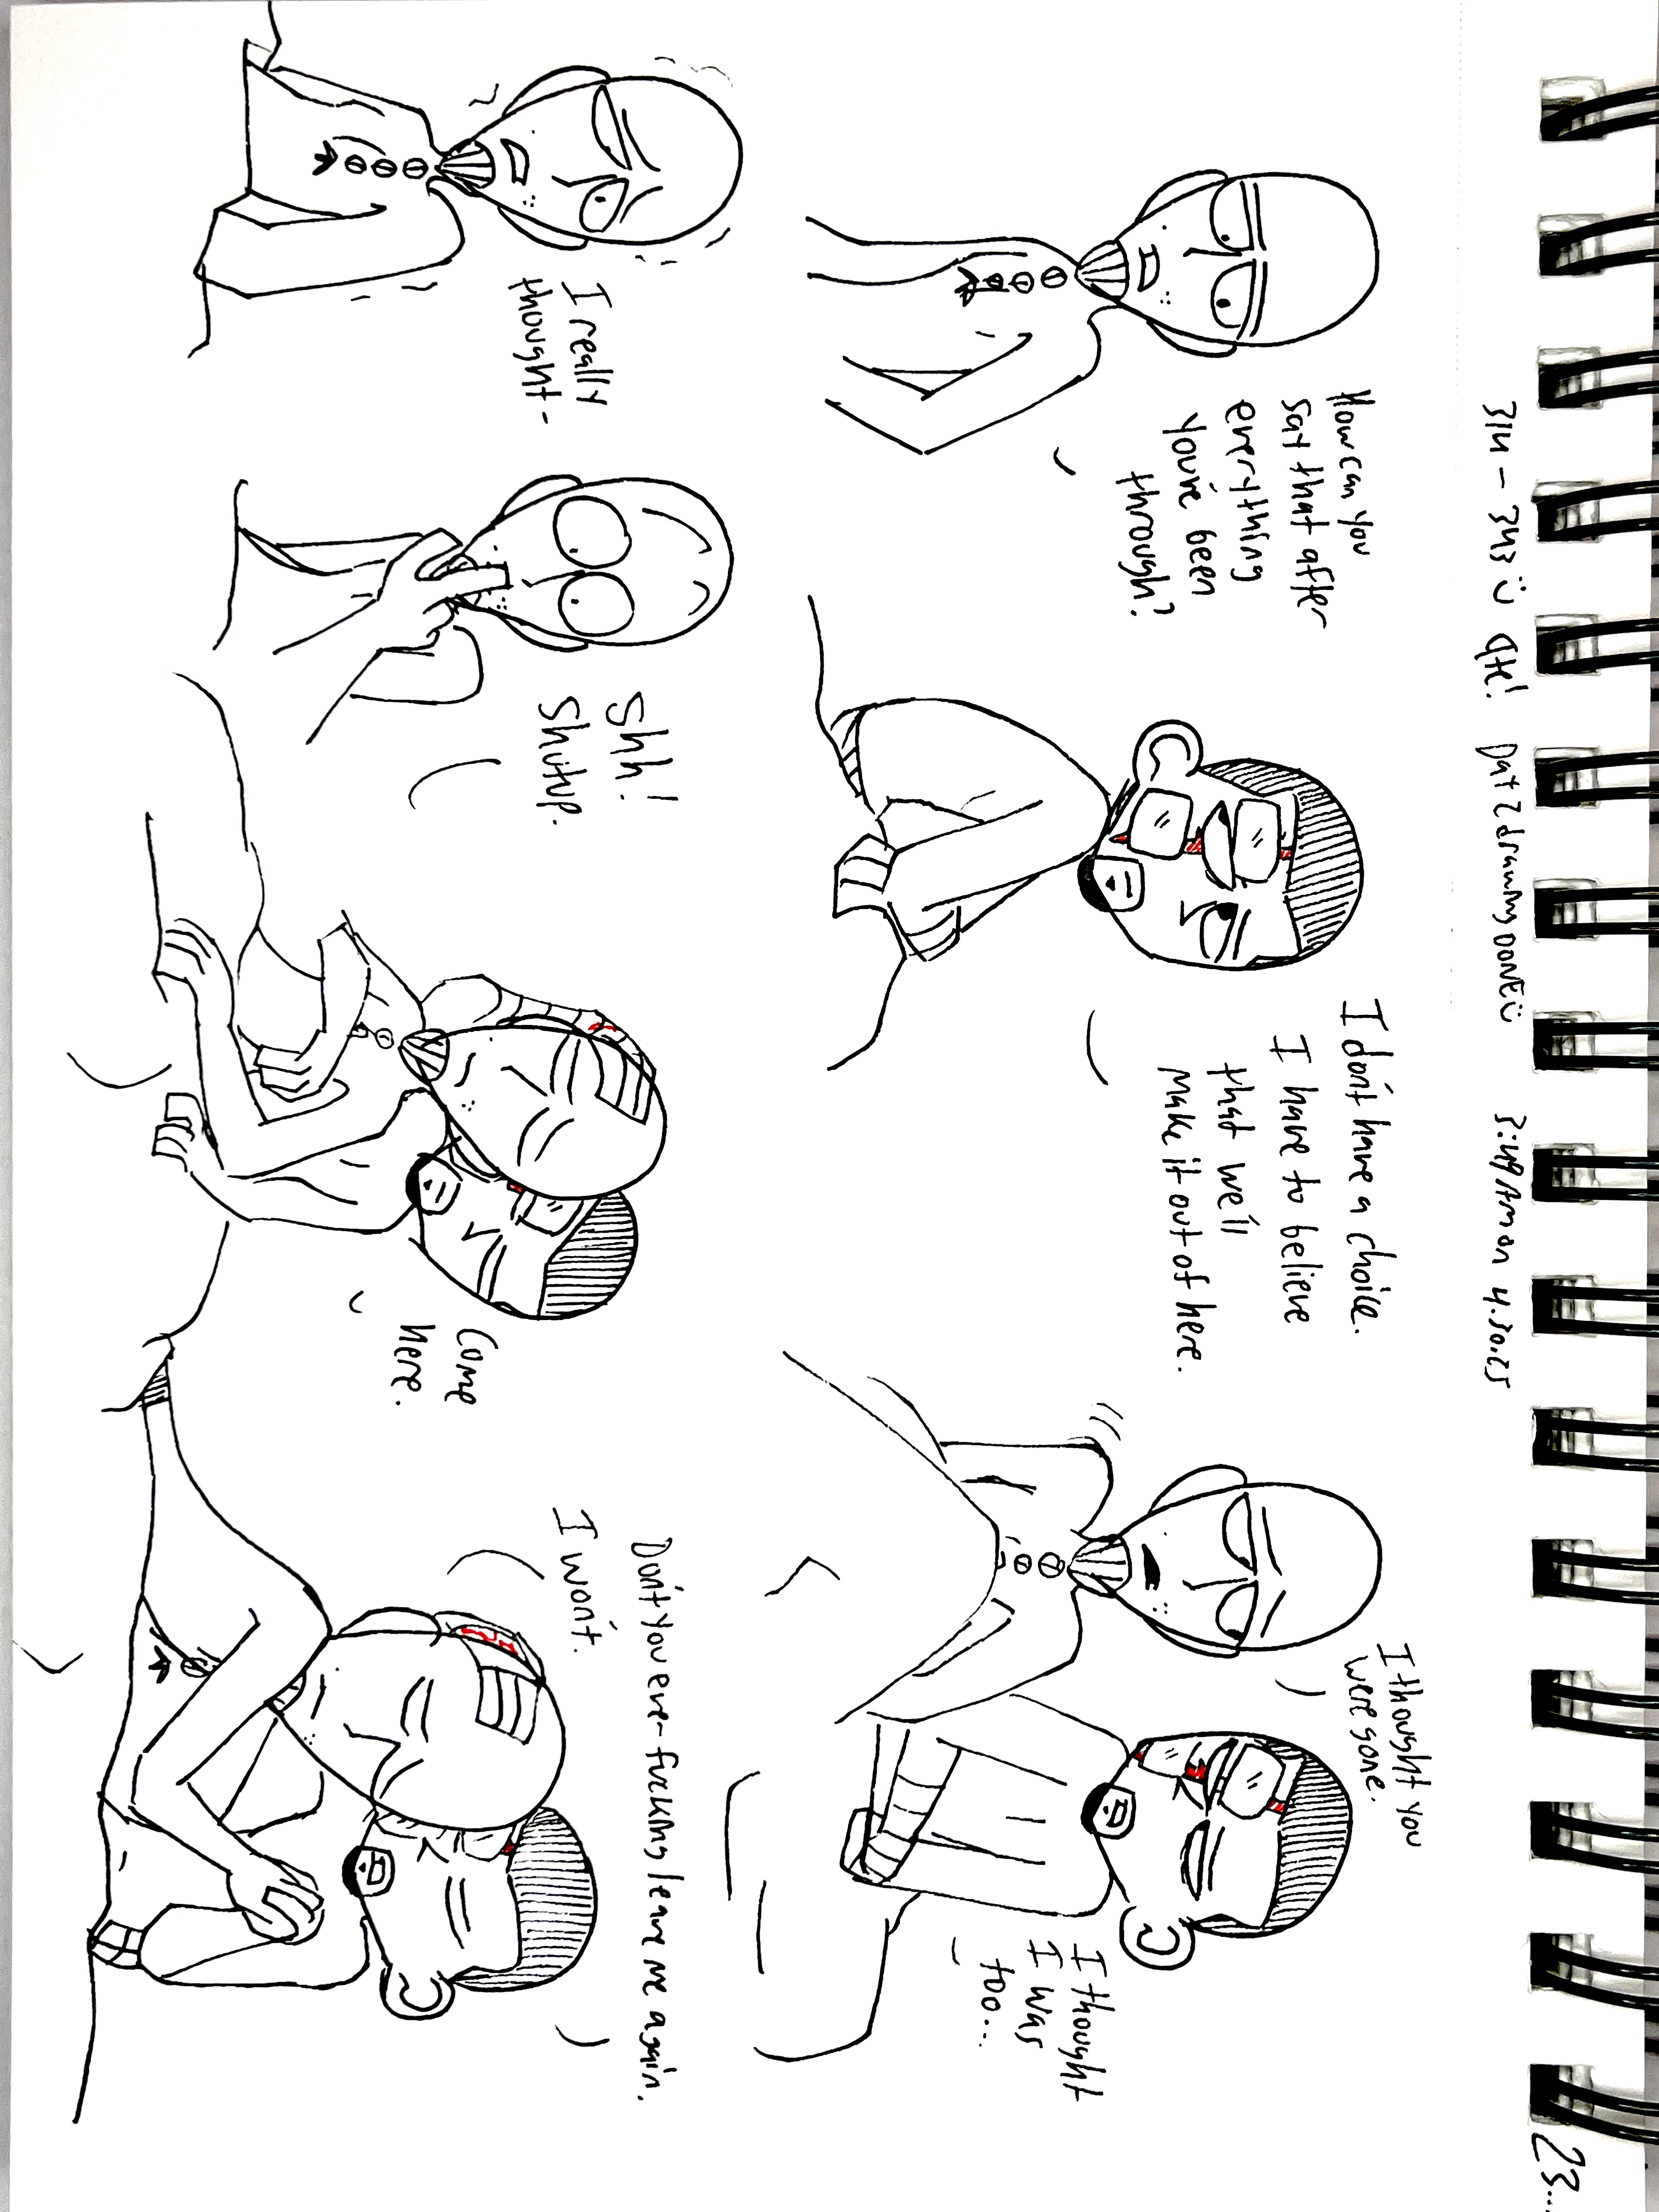 23...
314 - 343 Ü Qtc! Day 2 drawing DONE Ü 3:49 AM on 4.30.25
How can you
say that after
everything
you've been
through?
I don't have a choice.
I have to believe
that we'll
make it out of here.
I thought you
were gone.
I thought
I was
too...
I really
thought-
shh!
shutup.
Come
here.
Don't you ever fucking leave me again.
I won't.